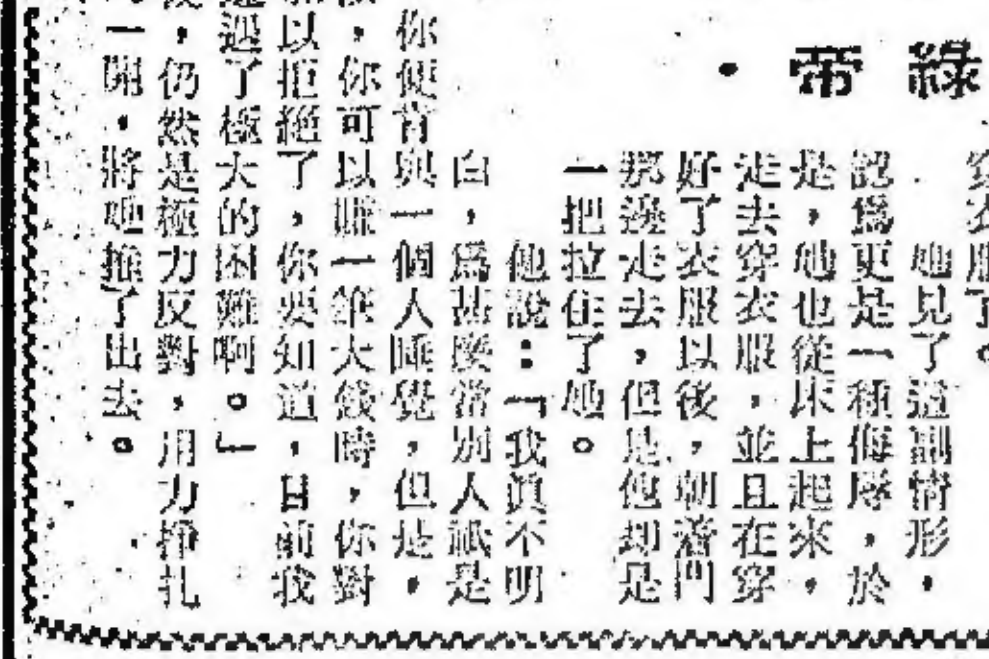 綠帝·
穿衣服了。
她見了這副情形,
認爲更是一種侮辱,於
是,她也從床上起來,
走去穿衣服,並且在穿
好了衣服以後,朝着門
那邊走去,但是他却是
一把拉住了她。
他說:「我眞不明
白,爲甚麼當別人祇是
你便肯與一個人睡覺,但是,
,你可以賺一筆大錢時,你對
以拒絕了,你要知道,目前我
遇了極大的困難啊。」
,仍然是極力反對,用力掙扎
一開,將她推了出去。